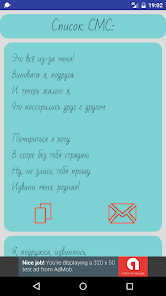 19:02
Список СМС:
Это всё из-за меня!
Виновата я, подруга.
И теперь жалею я,
Что поссорились друг с другом.
Помириться я хочу,
В ссоре без тебя страдаю.
Ну, не злись, тебя прошу,
Извини меня, родная!
Я, подружка, извиняюсь,
Nice job! You're displaying a 320 x 50
test ad from AdMob.
AdMob by Google